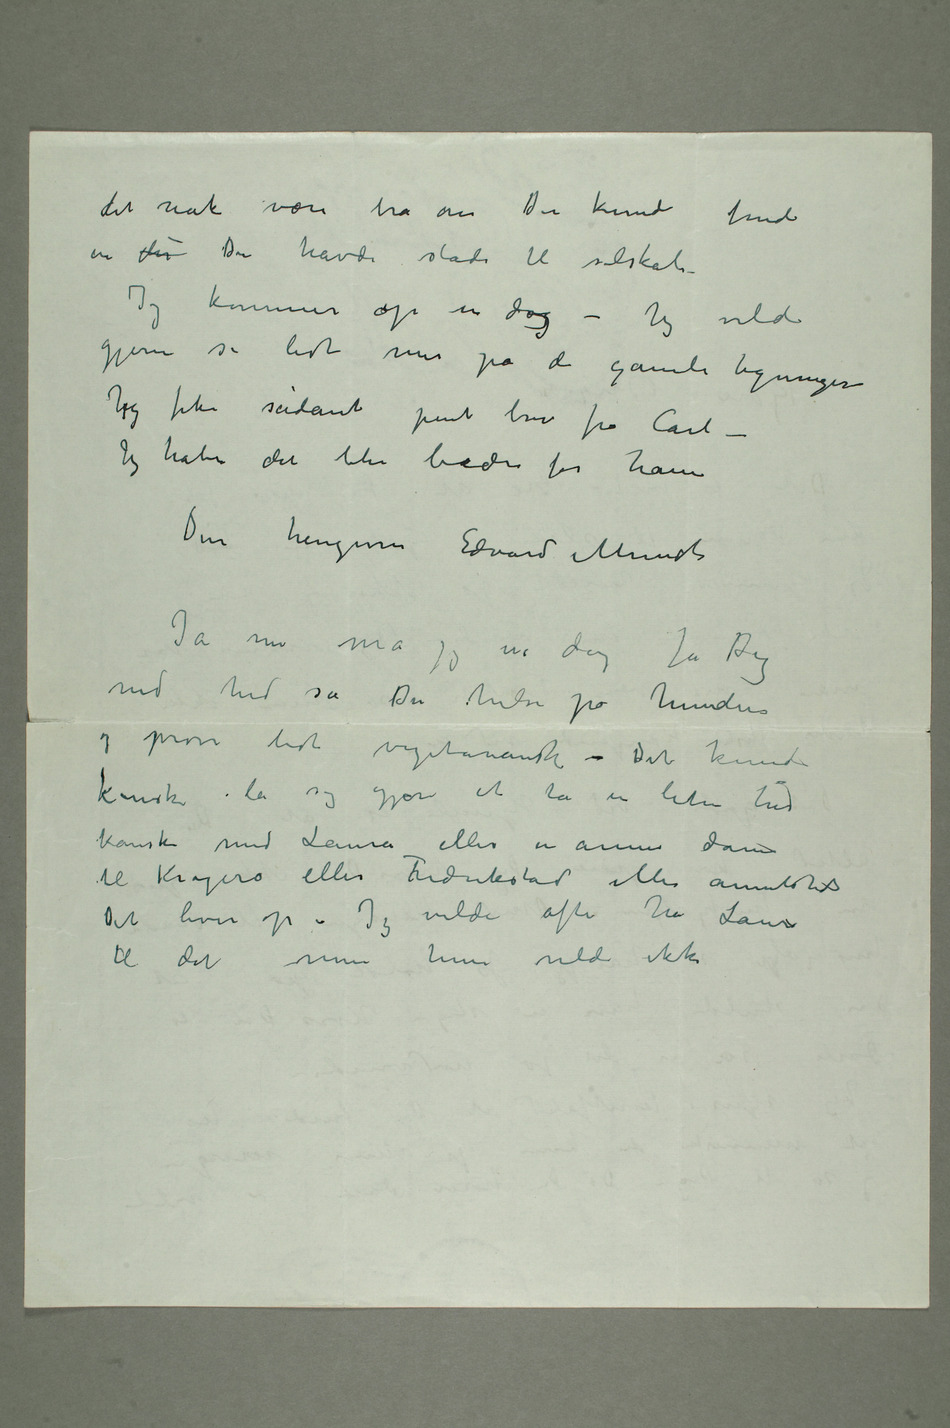 det nok være bra om Du kunde finde
en Du havde glæde til selskab –
Jeg kommer op en dag – Jeg vilde
gjerne se lidt mer på de gamle tegninger
Jeg fik sådant pent brev fra Carl –
Jeg håber det blir bedre for ham
Din hengivne Edvard Munch
Ja nu må jeg en dag få Dig
ned hid så Du hilse på hundene
og prøve lidt vegetariansk – Det kunde
kanske la sig gjøre at ta en liten tid
kanske med Laura eller en annen dame
til Kragerø eller Fredrikstad eller annetsteds
Det liver op – Jeg vilde ofte ha Laura
til det men hun vilde ikke